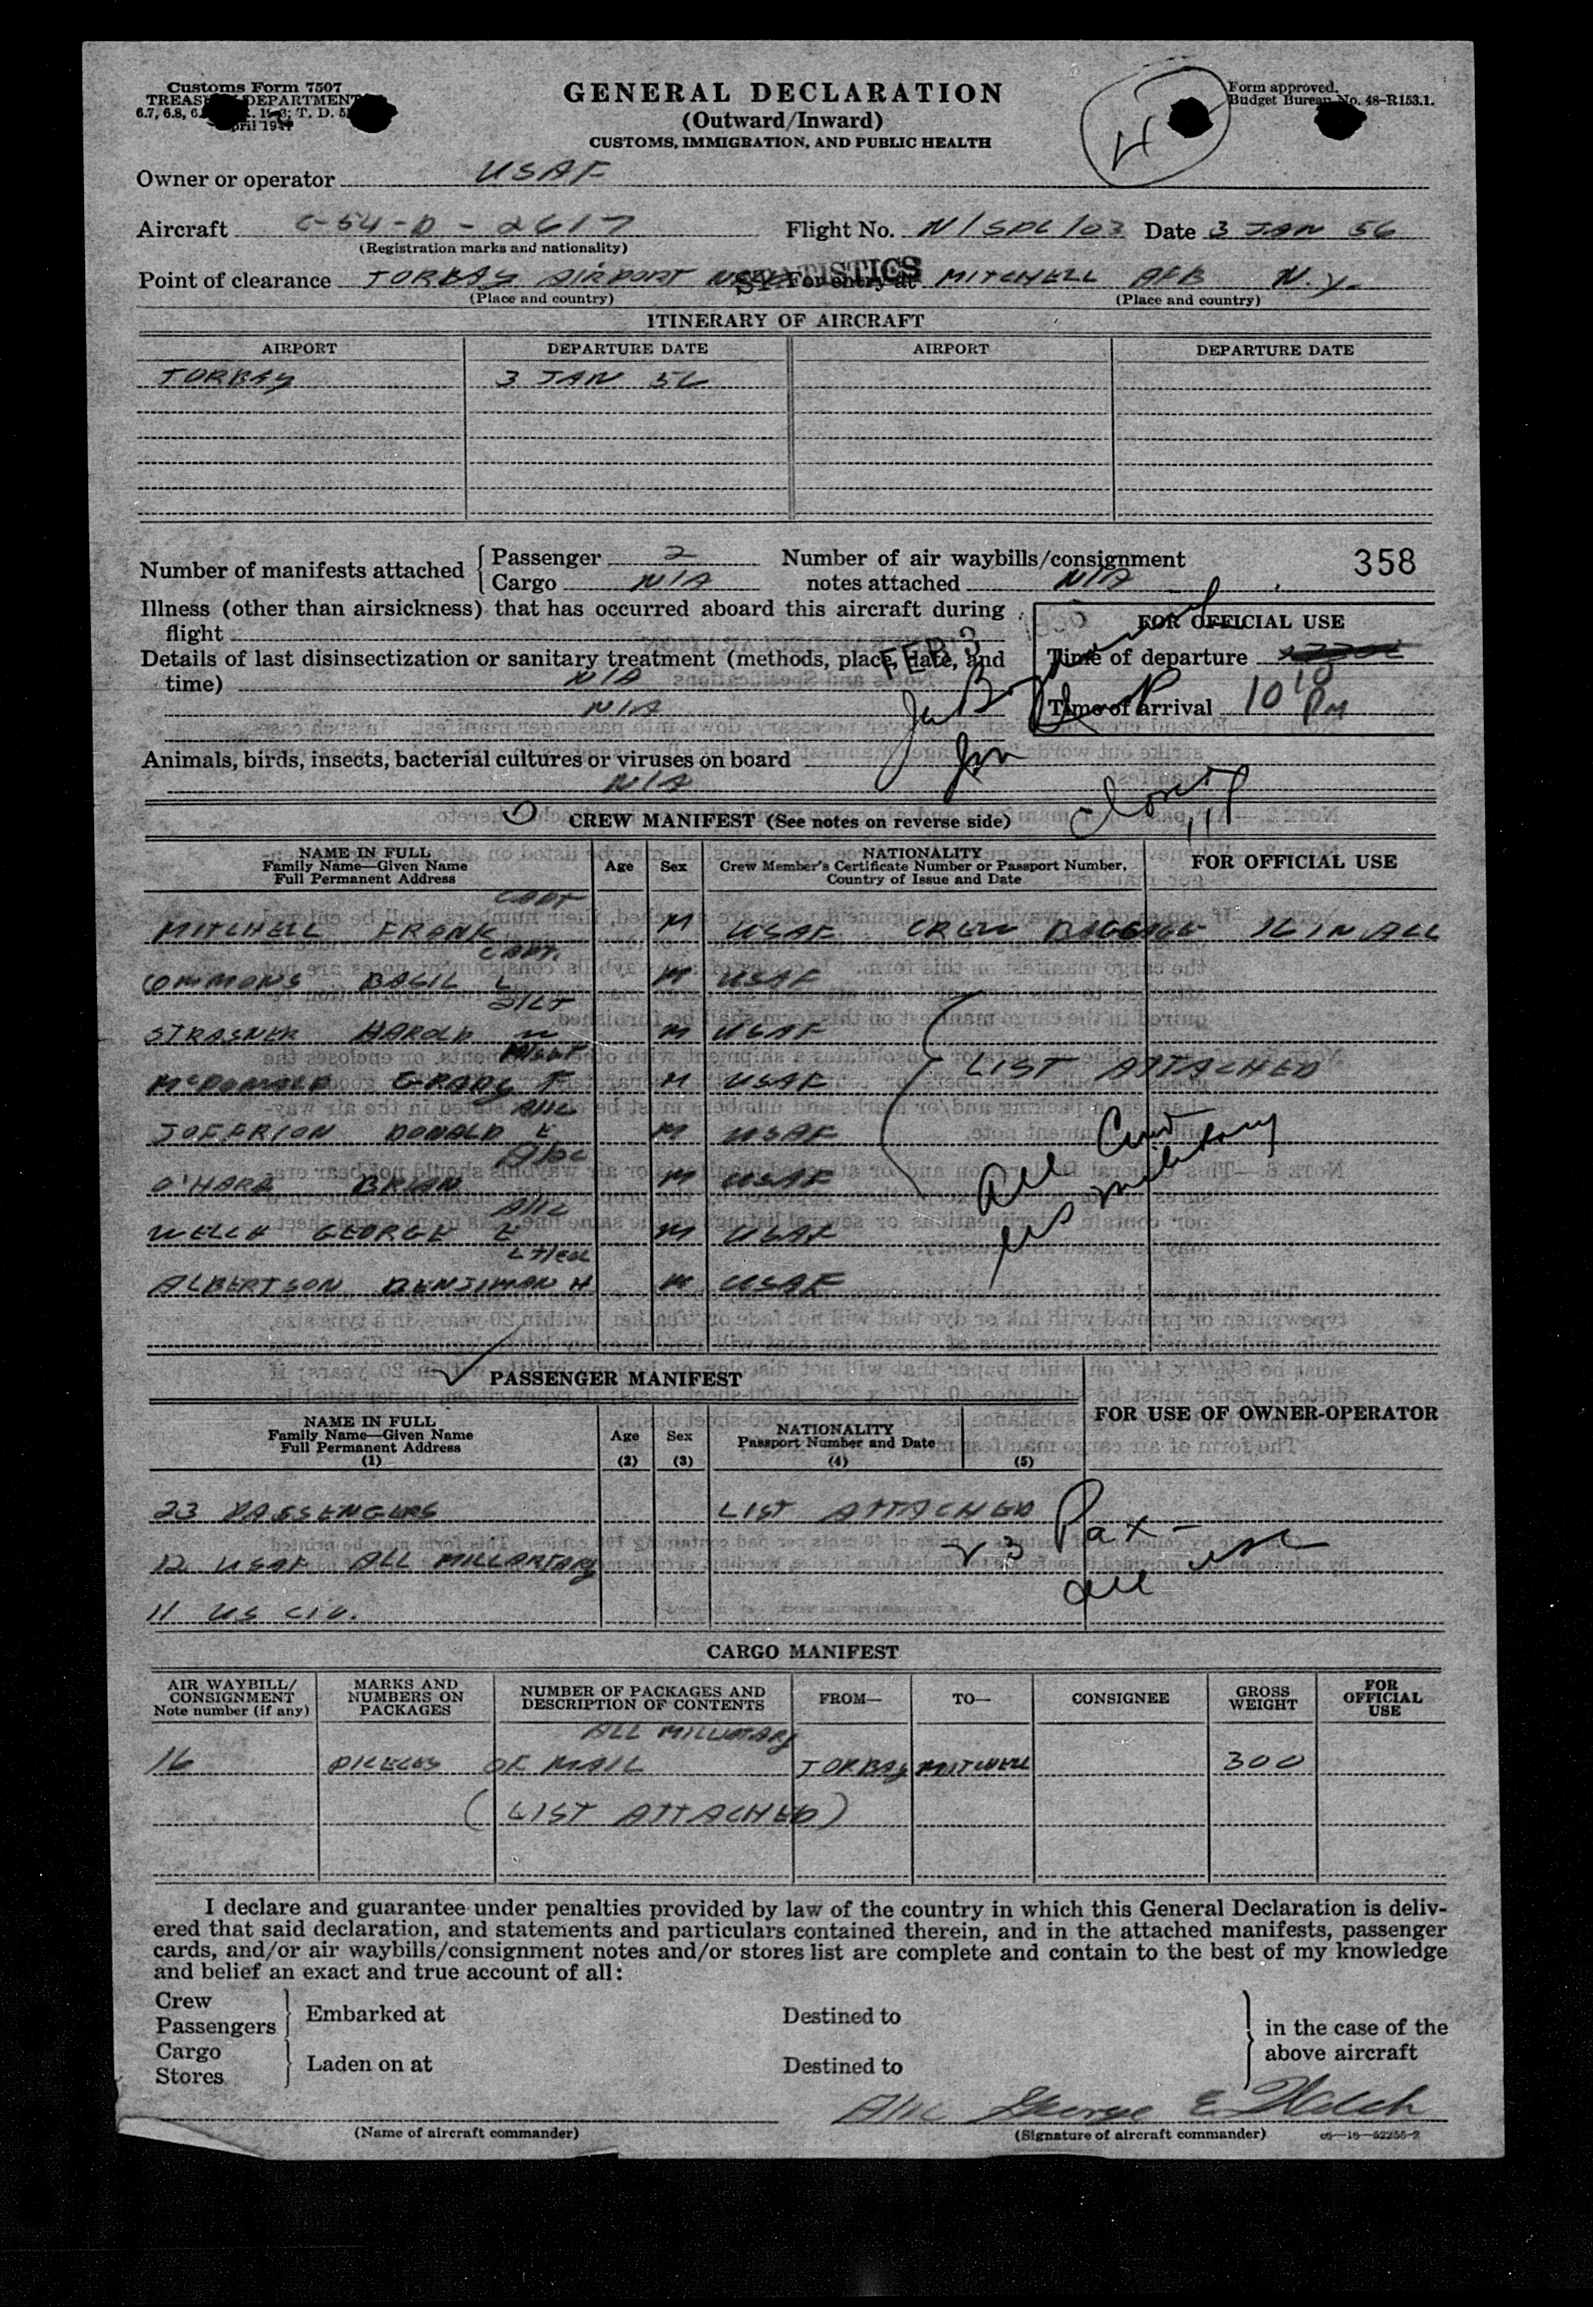 Customs Form 7507
TREASURY DEPARTMENT
April 1947
GENERAL DECLARATION
(Outward/Inward)
CUSTOMS, IMMIGRATION, AND PUBLIC HEALTH
Form approved.
Budget Bureau No. 48-R153.1.
4
Owner or operator USAF
Aircraft C-54-D-2617 Flight No. N/SPL/03 Date 3 JAN 56
(Registration marks and nationality)
STATISTICS
Point of clearance TORBAY AIRPORT For entry at MITCHELL AFB N.Y.
(Place and country) (Place and country)
ITINERARY OF AIRCRAFT
AIRPORT DEPARTURE DATE AIRPORT DEPARTURE DATE
TORBAY 3 JAN 56
Number of manifests attached Passenger 2 Number of air waybills/consignment 358
Cargo N/A notes attached N/A
Illness (other than airsickness) that has occurred aboard this aircraft during
flight
FOR OFFICIAL USE
FEB 3
Details of last disinsectization or sanitary treatment (methods, place, date, and
time) N/A
N/A
Time of departure
Time of arrival 10 10 PM
Animals, birds, insects, bacterial cultures or viruses on board
N/A
CREW MANIFEST (See notes on reverse side)
NAME IN FULL
Family Name—Given Name
Full Permanent Address
Age Sex
NATIONALITY
Crew Member's Certificate Number or Passport Number,
Country of Issue and Date
FOR OFFICIAL USE
CAPT
MITCHELL FRANK M USAF CREW BAGGAGE 16 IN ALL
CAPT.
COMMONS BASIL L M USAF
2/LT
STRASNER HAROLD M USAF
M/SGT
McDONALD GRADY F M USAF
LIST ATTACHED
A/1C
JOFFRION DONALD E M USAF
A/2C
O'HARA BRIAN M USAF
All Crew
US military
A/1C
WELCH GEORGE E M USAF
LT/COL
ALBERTSON BENJIMAN H M USAF
PASSENGER MANIFEST
NAME IN FULL
Family Name—Given Name
Full Permanent Address
(1)
Age
(2)
Sex
(3)
NATIONALITY
Passport Number and Date
(4) (5)
FOR USE OF OWNER-OPERATOR
23 PASSENGERS LIST ATTACHED
23 Pax -
12 USAF ALL MILLARTARY
all USC
11 US CIV.
CARGO MANIFEST
AIR WAYBILL/
CONSIGNMENT
Note number (if any)
MARKS AND
NUMBERS ON
PACKAGES
NUMBER OF PACKAGES AND
DESCRIPTION OF CONTENTS
FROM— TO— CONSIGNEE
GROSS
WEIGHT
FOR
OFFICIAL
USE
ALL MILLITARY
16 PIECES OF MAIL TORBAY MITCHELL 300
(LIST ATTACHED)
I declare and guarantee under penalties provided by law of the country in which this General Declaration is deliv-
ered that said declaration, and statements and particulars contained therein, and in the attached manifests, passenger
cards, and/or air waybills/consignment notes and/or stores list are complete and contain to the best of my knowledge
and belief an exact and true account of all:
Crew
Passengers
Embarked at Destined to
Cargo
Stores
Laden on at Destined to
in the case of the
above aircraft
A/1C George E. Welch
(Name of aircraft commander) (Signature of aircraft commander)